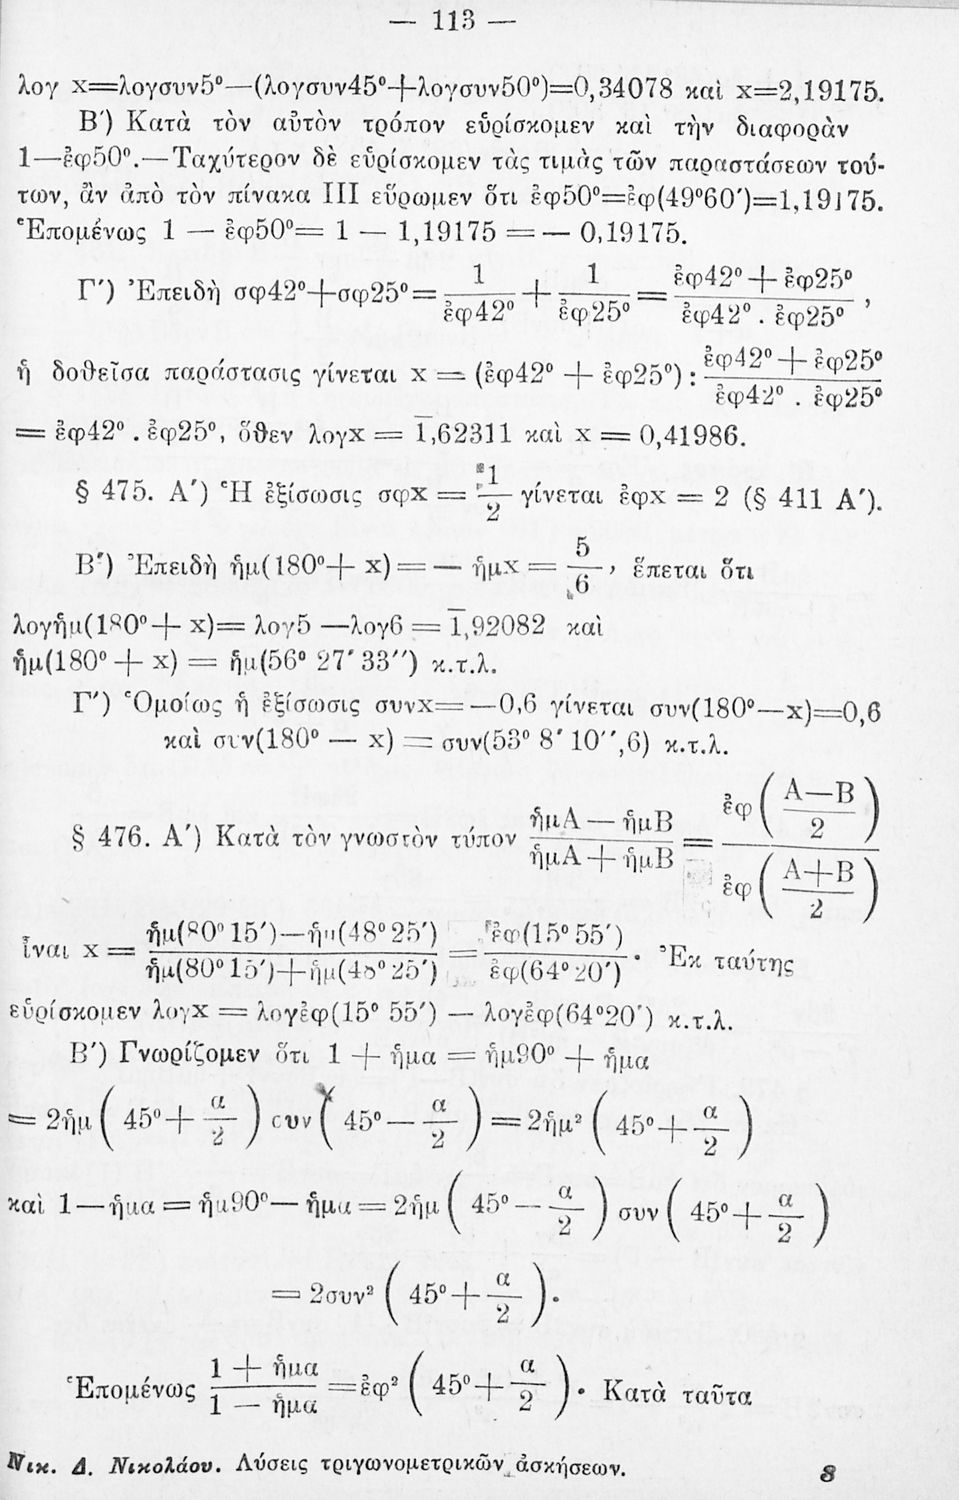 — 113 —
λογ x=λογσυν5°—(λογσυν45°+λογσυν50°)=0,34078 καὶ x=2,19175.
Β′) Κατὰ τὸν αὐτὸν τρόπον εὑρίσκομεν καὶ τὴν διαφορὰν
1—ἐφ50°.—Ταχύτερον δὲ εὑρίσκομεν τὰς τιμὰς τῶν παραστάσεων τού-
των, ἂν ἀπὸ τὸν πίνακα III εὕρωμεν ὅτι ἐφ50°=ἐφ(49°60′)=1,19175.
Ἑπομένως 1 — ἐφ50°= 1 — 1,19175 = — 0,19175.
Γ′) Ἐπειδὴ σφ42°+σφ25°= 1/ἐφ42° + 1/ἐφ25° = (ἐφ42°+ἐφ25°)/(ἐφ42° . ἐφ25°) ,
ἡ δοθεῖσα παράστασις γίνεται x = (ἐφ42° + ἐφ25°) : (ἐφ42°+ἐφ25°)/(ἐφ42° . ἐφ25°)
= ἐφ42° . ἐφ25°, ὅθεν λογx = 1̅,62311 καὶ x = 0,41986.
§ 475. Α′) Ἡ ἐξίσωσις σφx = 1/2 γίνεται ἐφx = 2 (§ 411 Α′).
Β′) Ἐπειδὴ ἡμ(180°+ x) = — ἡμx = 5/6 , ἕπεται ὅτι
λογἡμ(180°+ x)= λογ5 —λογ6 = 1̅,92082 καὶ
ἡμ(180° + x) = ἡμ(56° 27′ 33″) κ.τ.λ.
Γ′) Ὁμοίως ἡ ἐξίσωσις συνx=—0,6 γίνεται συν(180°—x)=0,6
καὶ συν(180° — x) = συν(53° 8′ 10″,6) κ.τ.λ.
§ 476. Α′) Κατὰ τὸν γνωστὸν τύπον (ἡμΑ — ἡμΒ)/(ἡμΑ + ἡμΒ) = ἐφ((Α—Β)/2)/ἐφ((Α+Β)/2)
ἶναι x = (ἡμ(80°15′)—ἡμ(48°25′))/(ἡμ(80°15′)+ἡμ(48°25′)) = ἐφ(15°55′)/ἐφ(64°20′) . Ἐκ ταύτης
εὑρίσκομεν λογx = λογἐφ(15° 55′) — λογἐφ(64°20′) κ.τ.λ.
Β′) Γνωρίζομεν ὅτι 1 + ἡμα = ἡμ90° + ἡμα
= 2ἡμ ( 45°+ α/2 ) συν ( 45° — α/2 ) = 2ἡμ² ( 45°+ α/2 )
καὶ 1—ἡμα = ἡμ90°— ἡμα = 2ἡμ ( 45° — α/2 ) συν ( 45°+ α/2 )
= 2συν² ( 45°+ α/2 ).
Ἑπομένως (1 + ἡμα)/(1 — ἡμα) =ἐφ² ( 45°+ α/2 ). Κατὰ ταῦτα
Νικ. Δ. Νικολάου. Λύσεις τριγωνομετρικῶν ἀσκήσεων. 8